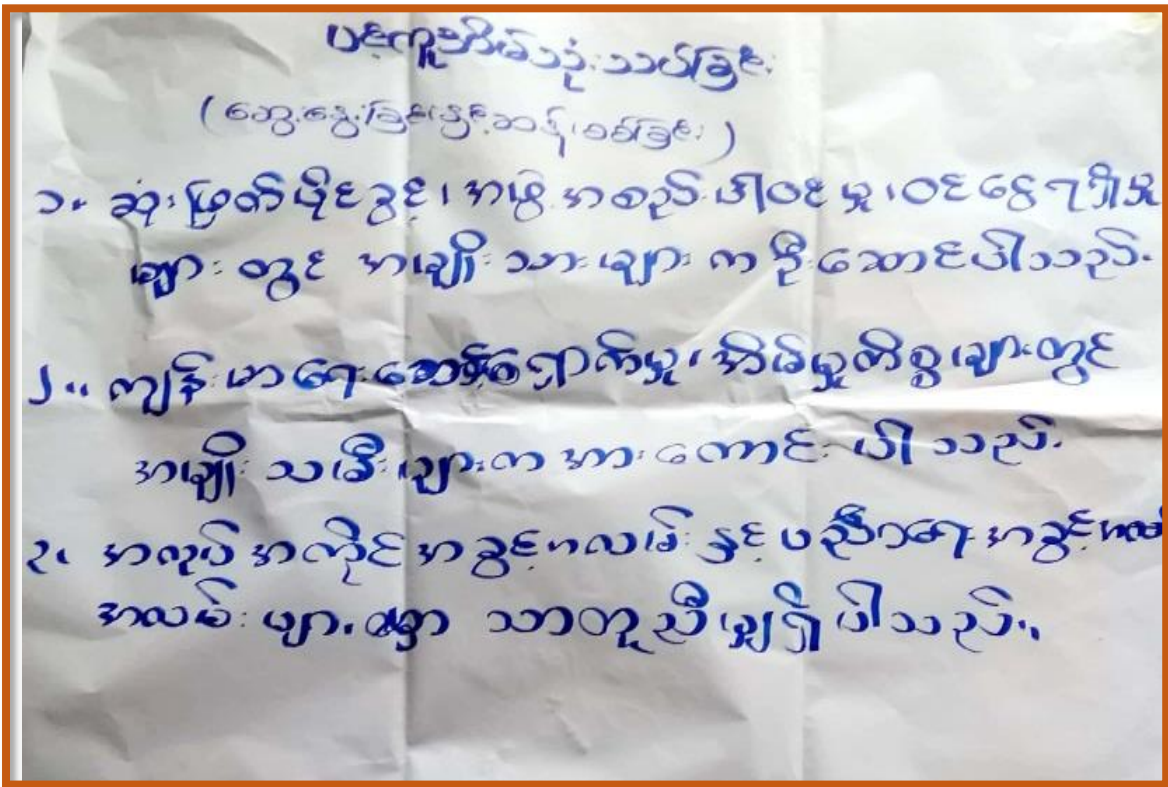 ပင့်ကူအိမ်သုံးသပ်ခြင်း
(ဆွေးနွေးခြင်းနှင့်ဆန်းစစ်ခြင်း)
၁. ဆုံးဖြတ်ပိုင်ခွင့်၊ အဖွဲ့အစည်းပါဝင်မှု၊ ဝင်ငွေရရှိမှု
များ တွင် အမျိုးသားများ က ဦးဆောင်ပါသည်.
၂.. ကျန်းမာရေးစောင့်ရှောက်မှု၊ အိမ်မှုကိစ္စများတွင်
အမျိုးသမီးများက အားကောင်းပါသည်.
၃. အလုပ်အကိုင်အခွင့်အလမ်းနှင့်ပညာရေးအခွင့်
အလမ်းများမှာ သာတူညီမျှရှိပါသည်..